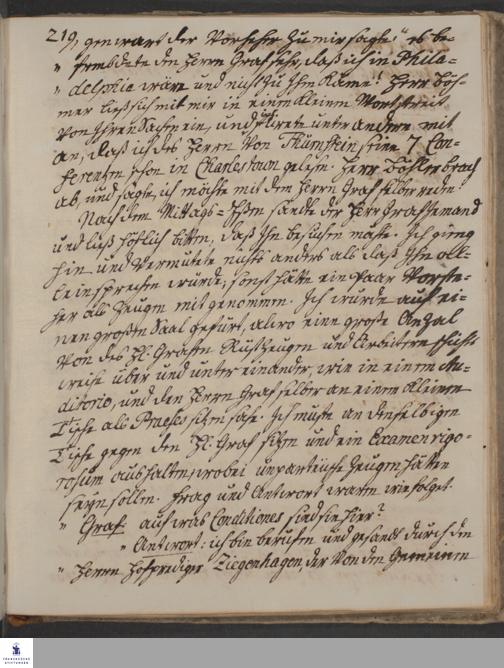 219, genwart der Vorsteher zu mir sagte: es be-
" frembdete den Herrn Graf sehr, daß ich in Phila-
" delphia wäre und nicht zu Ihm käme! Herr Böh-
mer ließ sich mit mir in einem kleinen Wortstreit
von Ihren Sachen ein, und führete unter andern mit
an, daß ich des Herrn von Thürnstein seine 7 Con-
ferentzen schon in Charlestown gelesen. Herr Böhler brach
ab, und sagte, ich möchte mit dem Herrn Graf selber reden.
Nach dem Mittags-Essen sandte der Herr Graf Jemand
und ließ höflich bitten, daß Ihn besuchen möchte. Ich gieng
hin und vermutete nichts anders als daß Ihn all-
ein sprechen würde, sonst hätte ein paar Vorste-
her als Zeugen mit genommen. Ich wurde auf ei-
nen großen Saal gefürt, alwo eine große Anzal
von des H. Grafen Rüstzeugen und Arbeitern schicht-
weise über und unter einander, wie in einem Au-
ditorio, und den Herrn Graf selber an einem kleinen
Tische als Praeses sitzen sahe. Ich muste an denselbigen
Tische gegen den H. Graf sitzen und ein Examen rigo-
rosum aushalten, wobei unparteische Zeugen hätten
seyn sollen. Frag und Antwort waren wie folget.
" Graf auf was Conditiones sind sie hier?
" Antwort: ich bin berufen und gesandt durch den
" Herrn Hofprediger Ziegenhagen, der von den Gemeinen
FRANCKESCHE
STIFTUNGEN